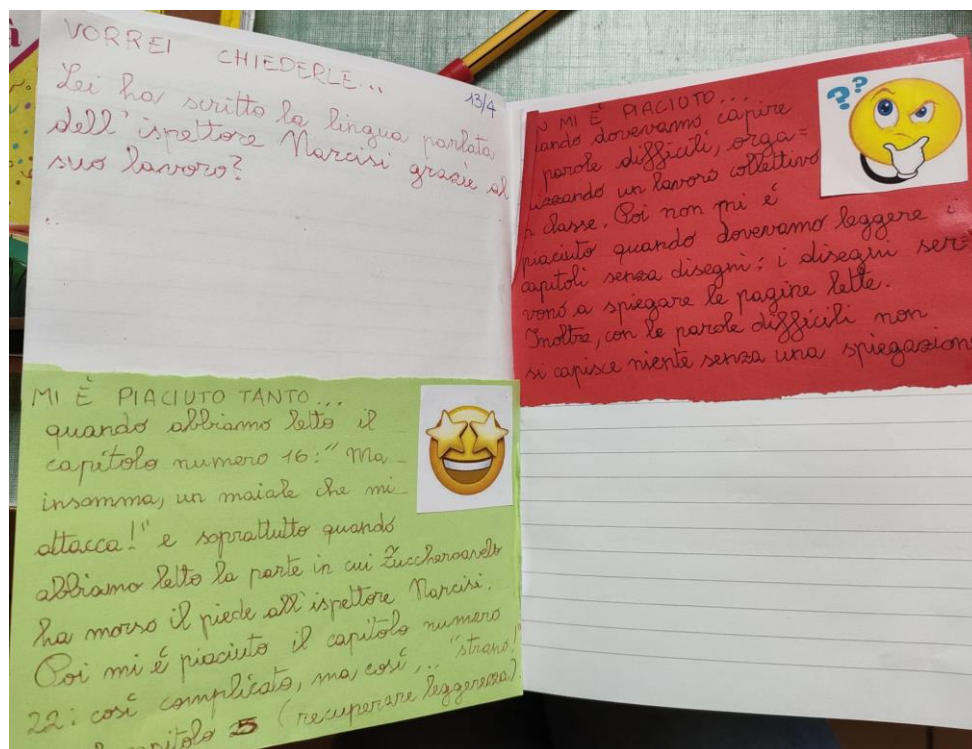 VORREI CHIEDERLE...
13/4
Lei ha scritto la lingua parlata
dell'ispettore Narcisi grazie al
suo lavoro?
MI È PIACIUTO TANTO...
quando abbiamo letto il
capitolo numero 16: "Ma
insomma, un maiale che mi
attacca!" e soprattutto quando
abbiamo letto la parte in cui Zuccheroarelto
ha morso il piede all'ispettore Narcisi.
Poi mi è piaciuto il capitolo numero
22: così complicato, ma così... "strano!"
(recuperare leggerezza).
MI È PIACIUTO...
dovevamo capire
parole difficili, orga=
un lavoro collettivo
classe. Poi non mi è
piaciuto quando dovevamo leggere i
capitoli senza disegni: i disegni ser=
vono a spiegare le pagine lette.
Inoltre, con le parole difficili non
si capisce niente senza una spiegazion
??